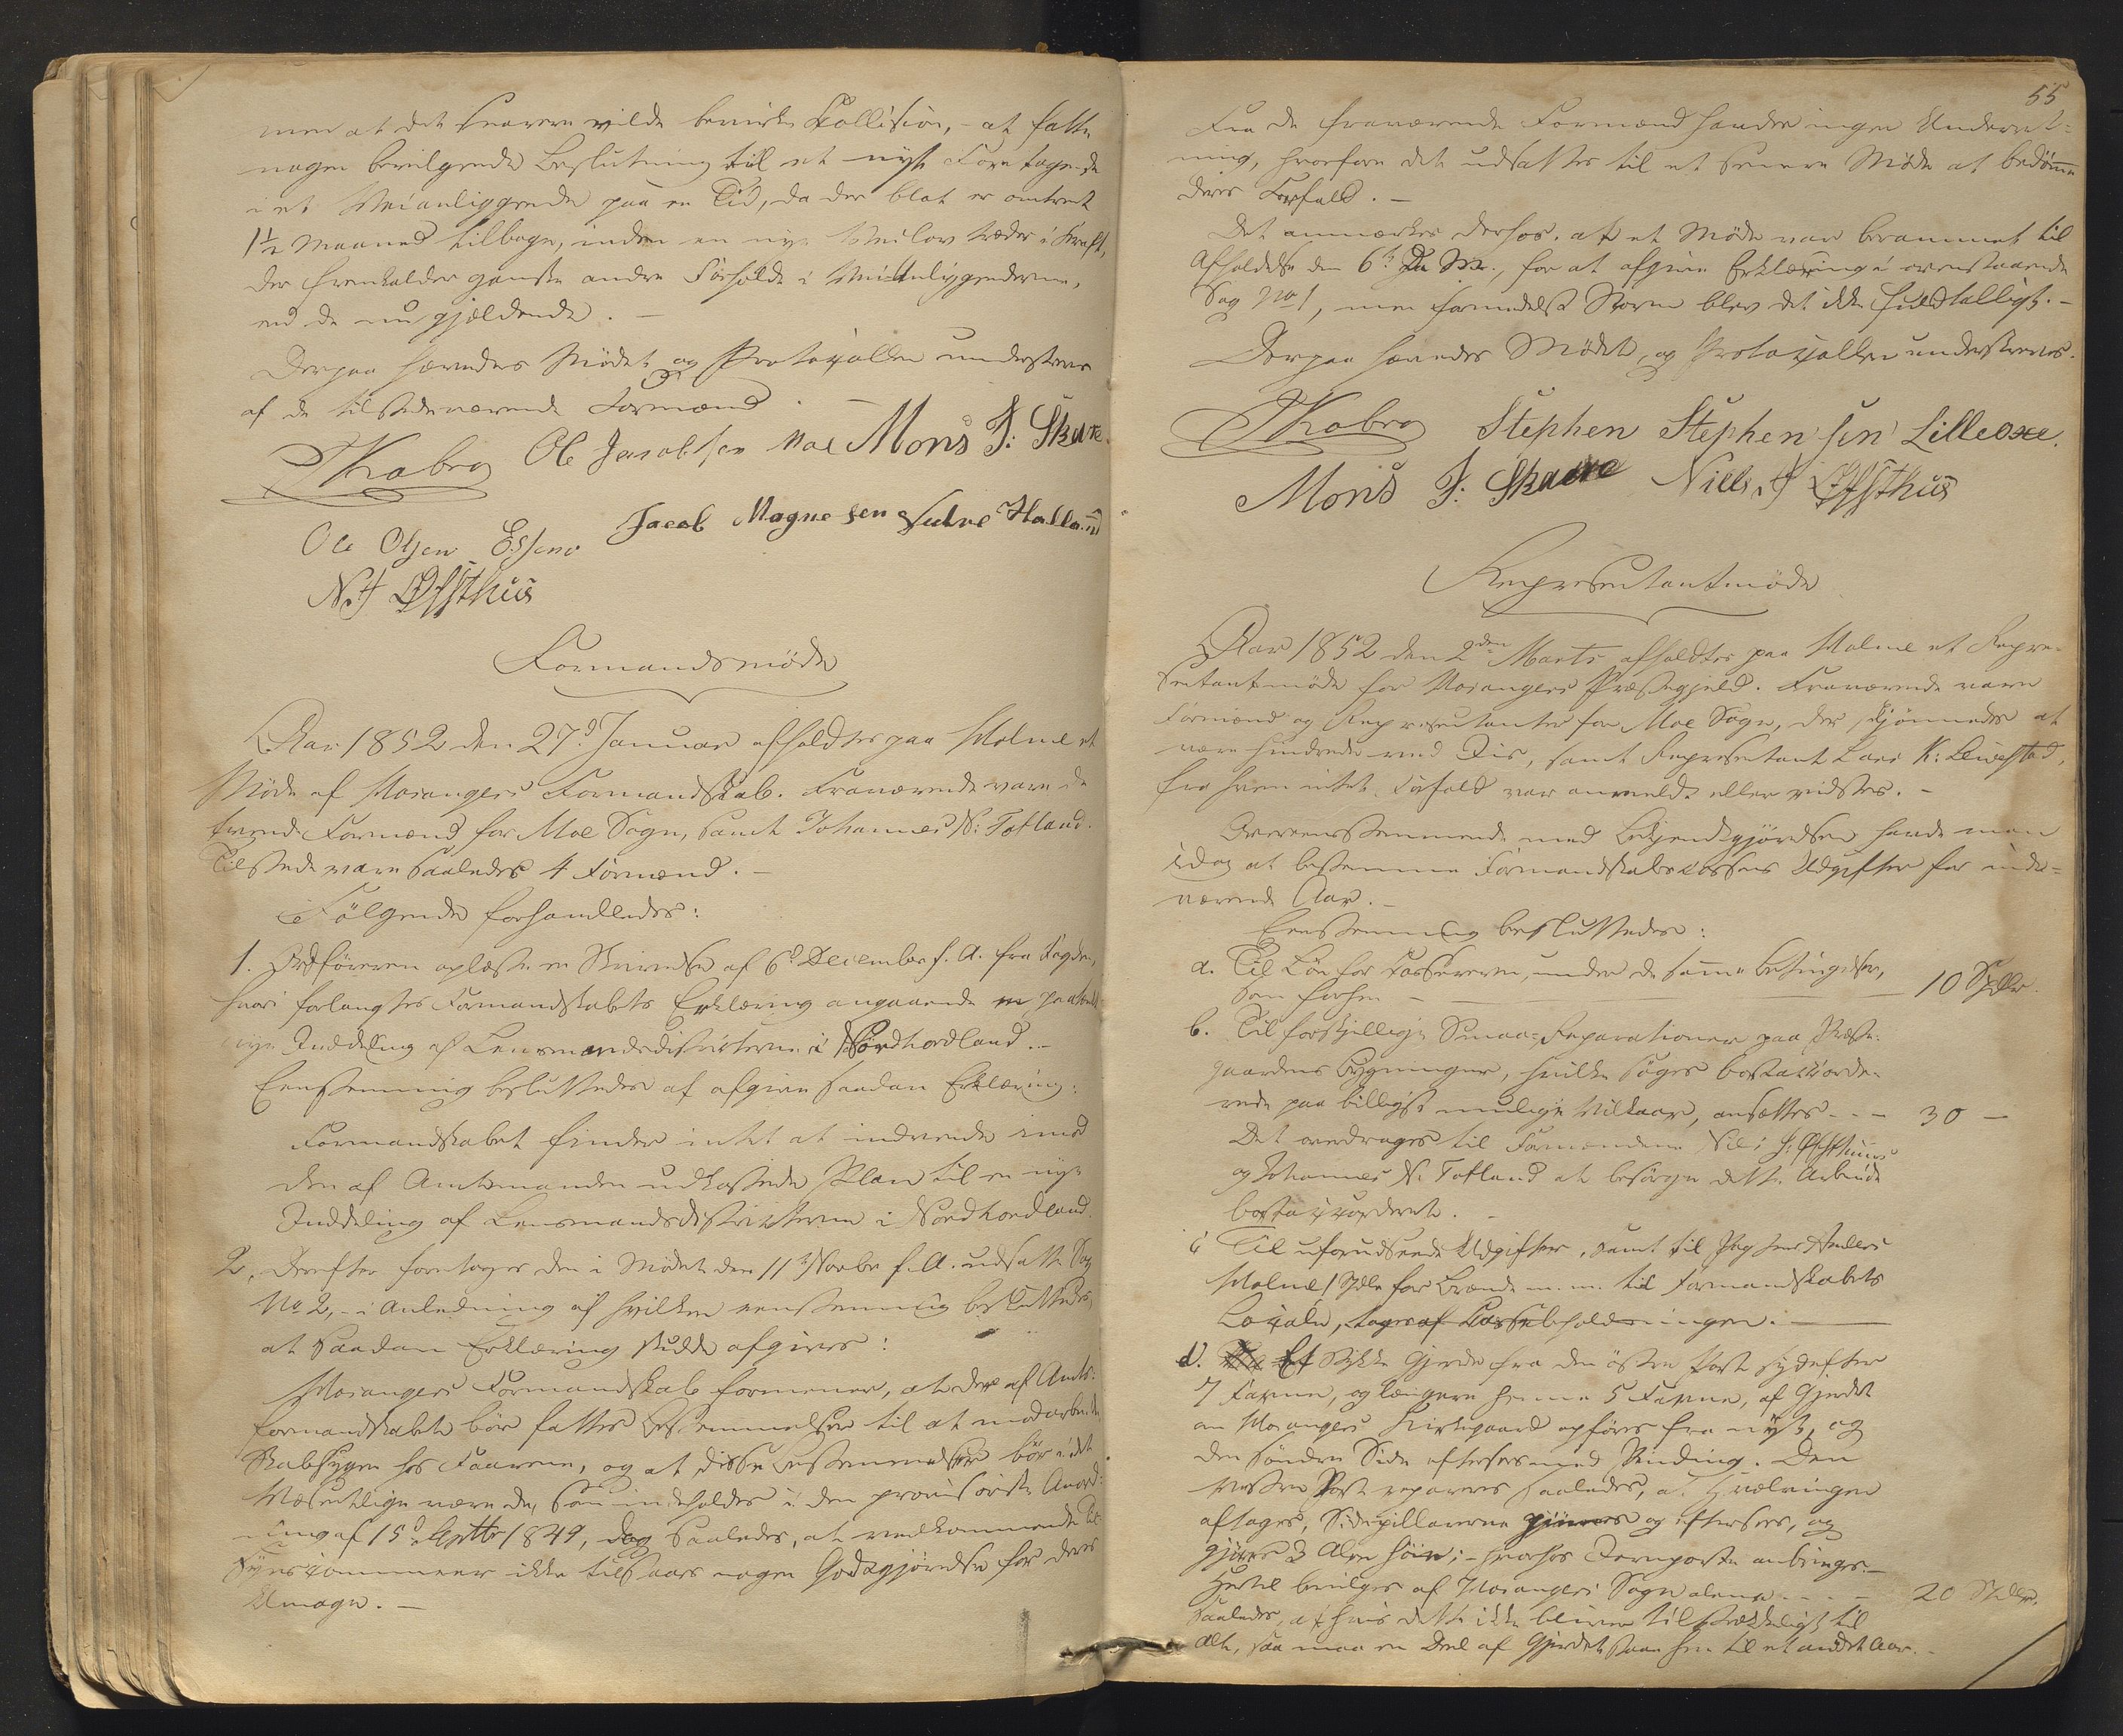 men at det snarere vilde bevirke Collision, - at fatte
nogen bevilgende Beslutning til et nyt Foretagende
i et Veianliggende paa en Tid, da der blot er omtrent
1½ Maaned tilbage, inden en nye Veilov træder i Kraft,
der fremkalder ganske andre Forholde i Veianliggenderne,
end de nu gjældende. -
Derpaa hævedes Mødet og Protocollen underskreves
af de tilstedeværende Formænd. -
Kobro Ole Jacobsen Moe Mons J: Skare.
Ole Olsen Jacob Magnesen Halland
N. J Øfsthus
Formandsmøde
Aar 1852 den 27d Januar afholdtes paa Holme et
Møde af Hosangers Formandskab. Fraværende vare de
tvende Formænd for Moe Sogn, samt Johannes N: Tofland.
Tilstede vare saaledes 4 Formænd. -
Følgende forhandledes:
1. Ordføreren oplæste en Skrivelse af 6d December f. A. fra Fogden,
hvori forlangtes Formandskabets Erklæring angaaende en paatænkt
nye Inddeling af Lensmandsdistricterne i Nordhordland. -
Eenstemmig besluttedes at afgive saadan Erklæring:
Formandskabet finder intet at indvende imod
den af Amtmanden udkastede Plan til en nye
Inddeling af Lensmandsdistricterne i Nordhordland.
2. Derefter foretoges den i Mødet den 11t Novbr f. A. udsatte Sag
No 2, - i Anledning af hvilken eenstemmig besluttedes,
at saadan Erklæring skulde afgives:
Hosangers Formandskab formener, at der af Amts-
formandskabet bør fattes Bestemmelser til at modarbeide
Skabsygen hos Faarene, og at disse Bestemmelser bør i det
Væsentlige være de, som indeholdes i den provisoriske Anord-
ning af 15d Septbr 1849, dog saaledes, at vedkommende Til-
synscommeer ikke tilstaaes nogen Godtgjørelse for deres
Umage. -
55
Fra de fraværende Formænd havdes ingen Underret-
ning, hvorfore det udsattes til et senere Møde at bedømme
deres Forfald. -
Det anmærkes derhos, at et Møde var berammet til
Afholdelse den 6t d. M., for at afgive Erklæring i ovenstaaende
Sag No 1, men formedelst Storm blev det ikke fuldtalligt. -
Derpaa hævedes Mødet, og Protocollen underskreves.
Kobro Stephen Stephensen Lilleoxe.
Mons J: Skare Niels J Øfsthus
Repræsentantmøde
Aar 1852 den 2den Marts afholdtes paa Holme et Repræ-
sentantmøde for Hosangers Præstegjeld. Fraværende vare
Formænd og Repræsentanter for Moe Sogn, der skjønnedes at
være hindrede ved Iis, samt Repræsentant Lars K:
fra hvem intet Forfald var anmeldt eller vidstes. -
Overeensstemmende med Bekjendtgjørelsen havde man
idag at bestemme Formandskabscassens Udgifter for inde-
værende Aar. -
Eenstemmig besluttedes:
a. Til Løn for Cassereren, under de samme Betingelser,
som forhen - 10 Spdlr.
b. Til forskjellige Smaa-Reparationer paa Præste-
gaardens Bygninger, hvilke søges bortaccorde-
rede paa billigst mulige Vilkaar, ansættes - - - 30 -
Det overdroges til Formændene Nils J: Øfsthus
og Johannes N. Tofland at besørge dette Arbeide
bortaccorderet. -
c Til uforudseende Udgifter, samt til
Holme 1 Spdlr for Brænde m. m. til Formandskabets
Locale, tages af Cassebeholdningen. -
d. Et Stykke Gjerde fra den østre Port sydefter
7 Favne, og længere henne 5 Favne, af Gjerdet
om Hosangers Kirkegaard opføres fra nyt, og
den søndre Side eftersees med Pinding. Den
vestre Port repareres saaledes, at Hvælvingen
aftages, Sidepillarerne og eftersees, og
gjøres 3 Alen høie; - hvorhos Jernporte anbringes. -
Hertil bevilges af Hosangers Sogn alene - - - 20 Spdlr.
saaledes, at hvis dette ikke bliver tilstrækkeligt til
Alt, saa maa en Deel af Gjerdet staae hen til et andet Aar. -